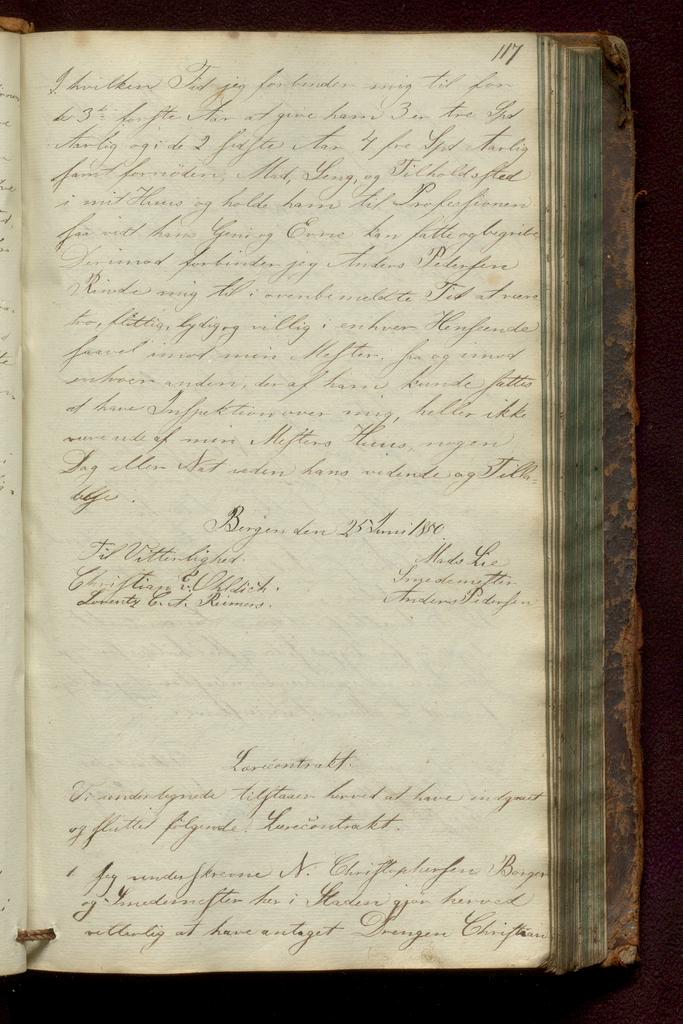 117
I hvilken Tid jeg forbinder mig til for
de 3de første Aar at give ham 3 er tre Spd
Aarlig og i de 2 sidste Aar 4 fire Spd Aarlig
samt fornøden, Mad, Seng, og Tilholdssted
i mit Huus og holde ham til Professionen
saa vidt hans Geni og Evne kan fatte og begribe
Derimod forbinder jeg Anders Pedersen
Rinde mig til i ovenbemeldte Tid at være
tro, flittig, lydig og villig i enhver Henseende
saavel imod min Mester, saa og imod
enhver anden, der af ham kunde sættes
at have Inspektion over mig, heller ikke
være ude af min Mesters Huus, nogen
Dag eller Nat uden hans vidende og Tilla-
delse.
Bergen den 25 Juni 1850
Til Vitterlighed. Mads Lie
Christian Ohldich. Smedemester
Lorentz C. A. Reimers. Anders Pedersen
Lærecontrakt.
Vi undertegnede tilstaaer herved at have indgaaet
og sluttet følgende Lærecontrakt.
1 Jeg underskrevne N. Christophersen Borger
og Smedemester her i Staden gjør herved
vitterlig at have antaget Drengen Christian